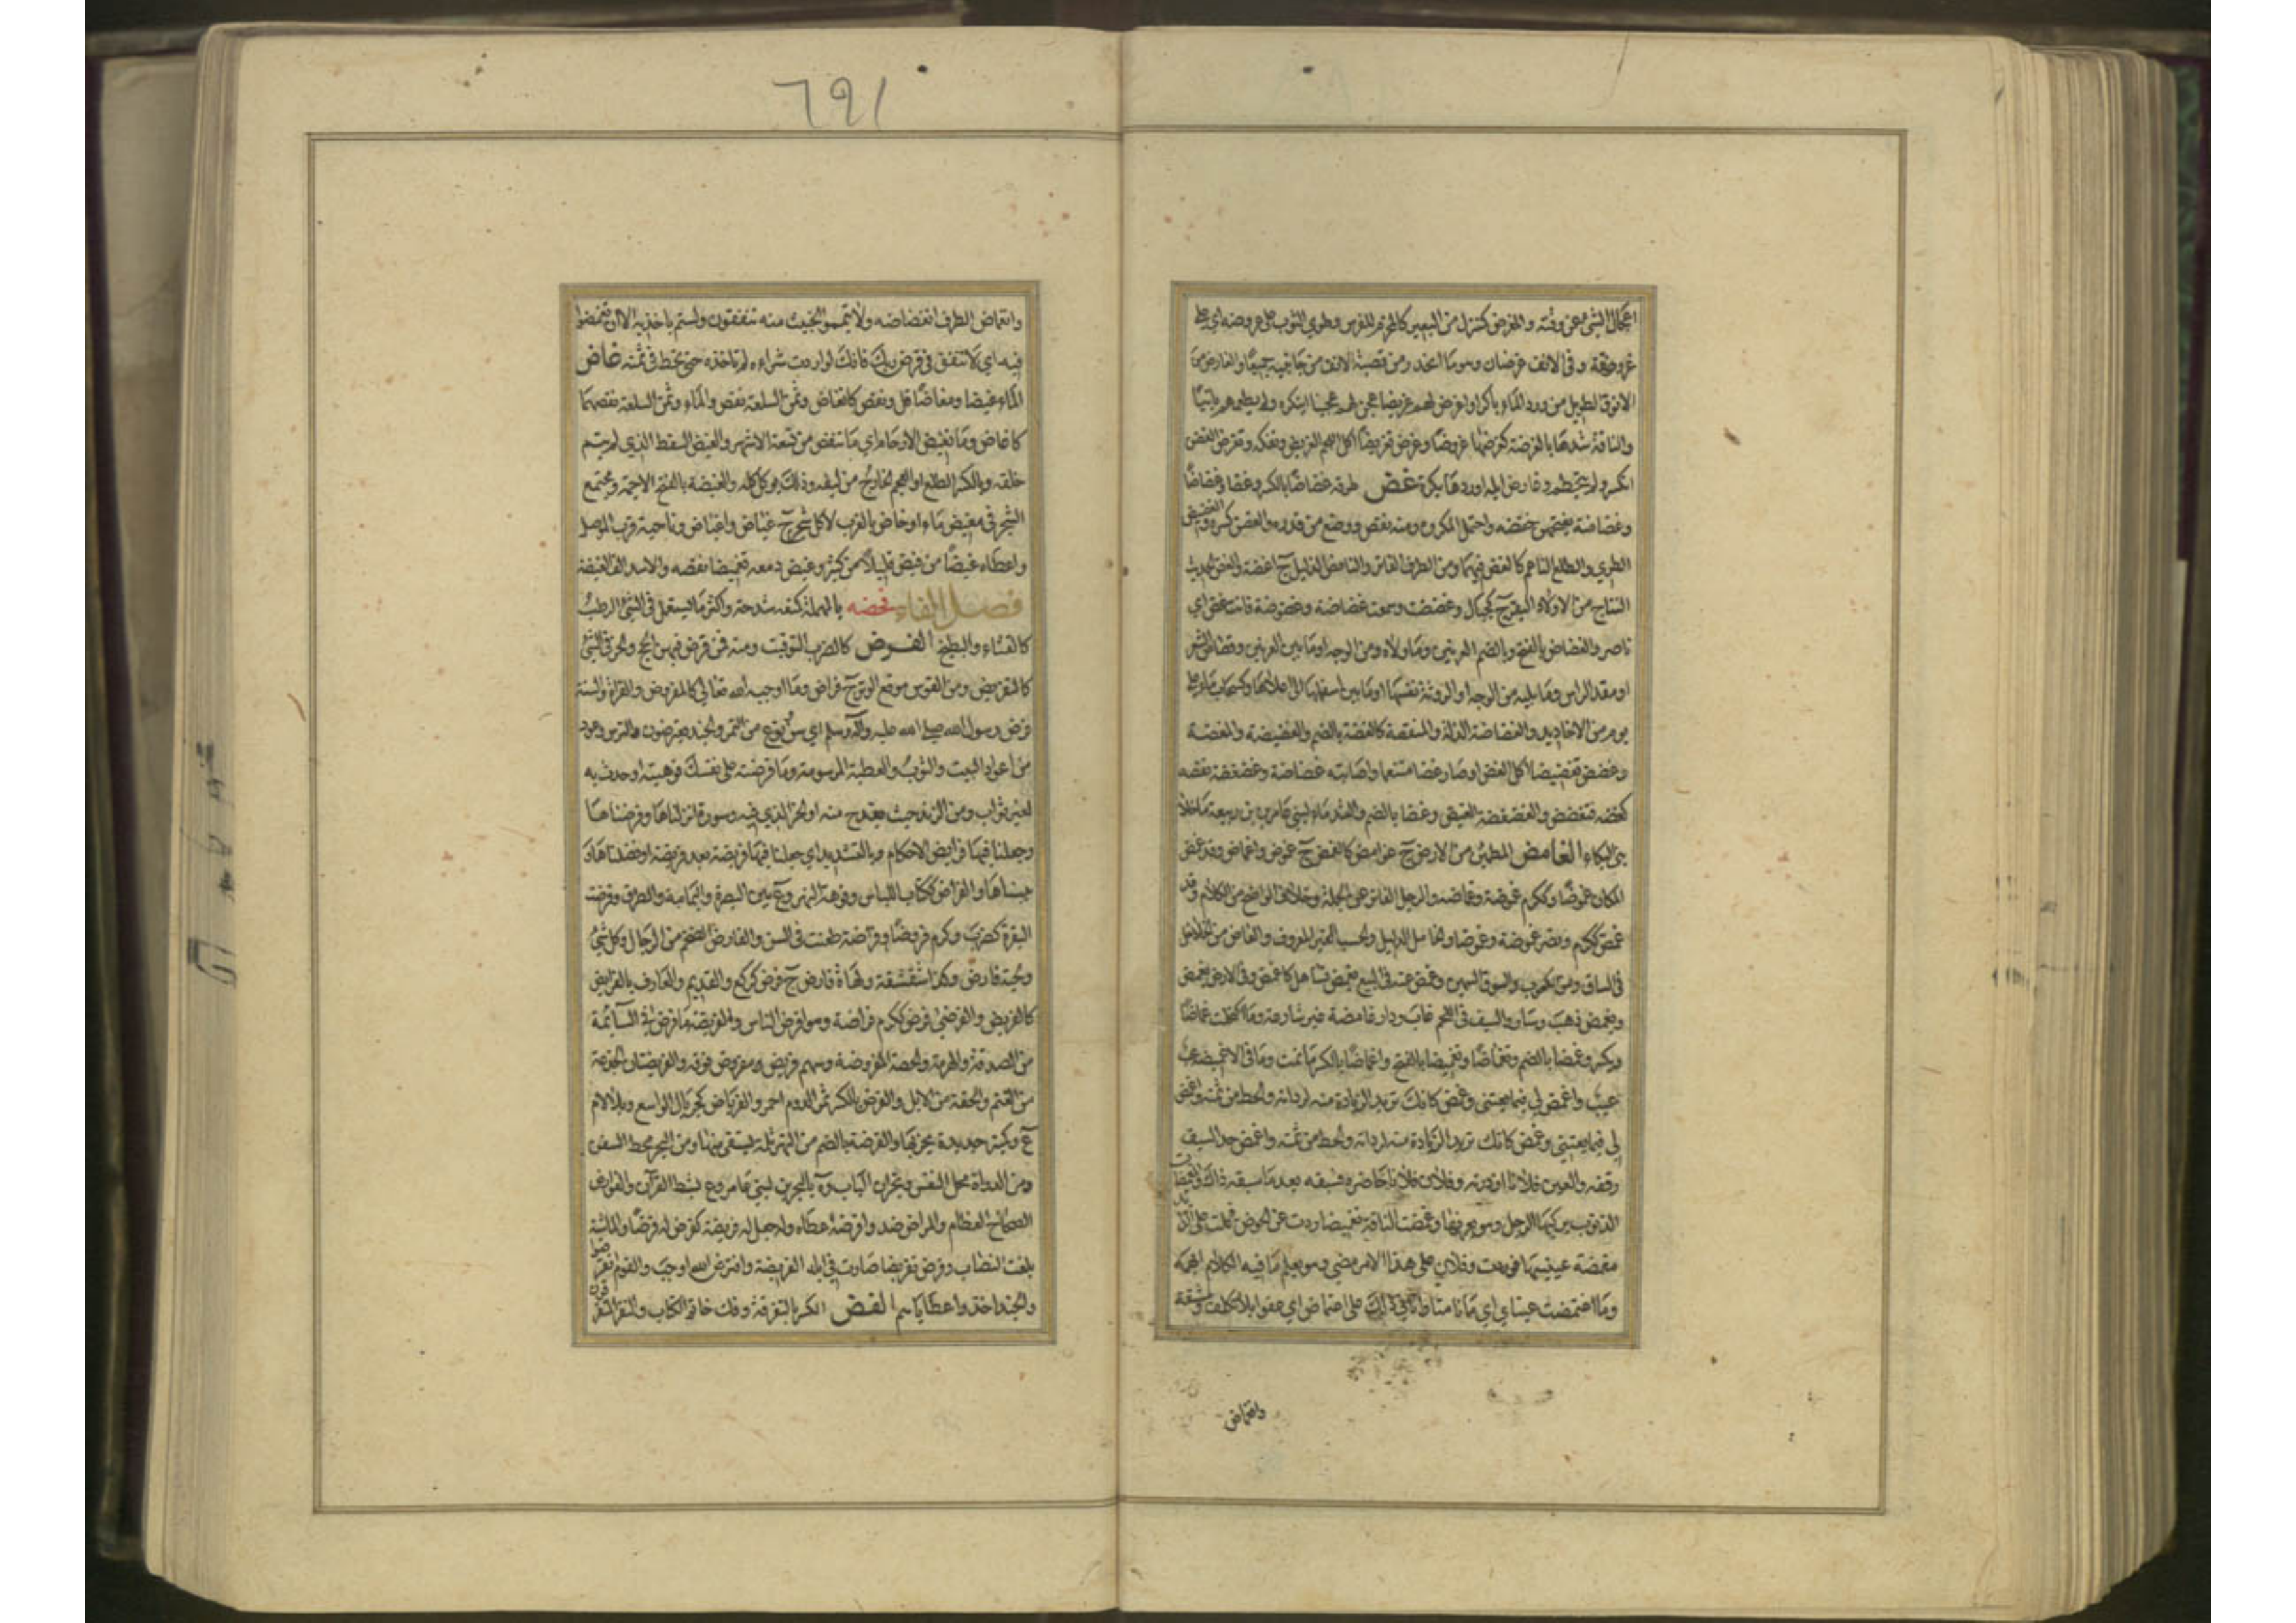 اعجال الشيء عن وقته والمغرض كمنزل من البعير كالمحزم للفرس وطوي الثوب على غروضه اي على
غرضان وهو ما انحدر من قصبة الانف من جانبيه جميعا والغارض من
الانوف الطويل ومن ورد الماء باكرا وغرض لهم غريضا عجن لهم عجينا ابتكره ولم يطعمهم بائتا
والناقة شدها بالغرضة كغرضها غروضا وغرض تغريضا اكل اللحم الغريض وتفكه وتغرض الغصن
انكسر ولم يتحطم وغارض ابله اوردها بكرة غض طرفه غضاضا بالكسر وغضا وغضاضا
وغضاضة بفتحهن خفضه واحتمل المكروه ومنه نقص ووضع من قدره والغصن كسره والغضيض
الطري والطلع الناعم كالغض فيهما ومن الطرف الفاتر والناقص الذليل ج اغضة والغض الحديث
النتاج من اولاد البقر ج كجبال وغضضت وسمعت غضاضة وغضوضة فانت غض اي
ناضر والغضاض بالفتح وبالضم العرنين وما والاه ومن الوجه او ما بين العرنين وقصاص الشعر
او مقدم الراس وما يليه من الوجه او الروثة نفسها او ما بين اسفلها الى اعلاها وكسحاب ماء على
يوم من الاخاديد والغضاضة الذلة والمنقصة كالغضة بالضم والغضيضة والمغضة
وغضض تغضيضا اكل الغض او صار غضا متنعما او اصابته غضاضة وغضغضه نقصه
كغضه فتغضغض والغضغضة الغيض وغضا بالضم والشد ماء لبني عامر بن ربيعة ما خلا
بني البكاء الغامض المطمئن من الارض ج غوامض كالغمض ج غموض واغماض وقد غمض
المكان غموضا وككرم غموضة وغماضة والرجل الفاتر عن الحملة وخلاف الواضح من الكلام وقد
غمض ككرم ونصر غموضة وغموضا والخامل الذليل والحسب الغير المعروف والغاص من الخلاخل
في الساق ومن الكعوب والسوق السمين وغمض عنه في البيع يغمض تساهل كاغمض وفي الارض يغمض
ويغمض ذهب وسار والسيف في اللحم غاب ودار غامضة غير شارعة وما اكتحلت غماضا
ويكسر وغمضا بالضم وتغماضا وتغميضا بالفتح واغماضا بالكسر ما نمت وما في الامر غميضة
عيب واغمض لي فيما بعتني وغمض كانك تريد الزيادة منه لرداته والحط من ثمنه واغمض
لي فيما بعتني وغمض كانك تريد الزيادة منه لرداته والحط من ثمنه واغمض حد السيف
رققه والعين فلانا ازدرته وفلان فلانا حاضره فسبقه بعد ما سبقه ذاك والمغمضات
الذنوب يركبها الرجل وهو يعرفها وغمضت الناقة تغميضا ردت عن الحوض فحملت على الذائد
مغمضة عينيها فوردت وفلان على هذا الامر مضى وهو يعلم ما فيه الكلام ابهمه
وما اغتمضت عيناي اي ما نامتا واتاني ذلك على اغتماض اي عفوا بلا تكلف ومشقة
واغماض
٦٩١
وانغماض الطرف انغضاضه ولا تيمموا الخبيث منه تنفقون ولستم باخذيه الا ان تغمضوا
فيه اي لا تنفق في قرض ربك فانك لو اردت شراءه لم تاخذه حتى تحط في ثمنه غاض
الماء غيضا ومغاضا قل ونقص كانغاض وثمن السلعة نقص والماء وثمن السلعة نقصهما
كاغاض وما تغيض الارحام اي ما تنقص من تسعة الاشهر والغيض السقط الذي لم يتم
خلقه وبالكسر الطلع او العجم الخارج من ليفه وذلك يوكل كله والغيضة بالفتح الاجمة ومجتمع
الشجر في مغيض ماء او خاص بالغرب لا كل شجر ج غياض واغياض وناحية قرب الموصل
واعطاه غيضا من فيض قليلا من كثير وغيض دمعه تغييضا نقصه والاسد الف الغيضة
فصل الفاء فحضه بالمهملة كمنعه شدخه واكثر ما يستعمل في الشيء الرطب
كالقثاء والبطيخ الفرض كالضرب التوقيت ومنه فمن فرض فيهن الحج والحز في الشيء
كالتفريض ومن القوس موقع الوتر ج فراض وما اوجبه الله تعالى كالمفروض والقراءة والسنة
فرض رسول الله صلى الله عليه وآله وسلم اي سن ونوع من التمر والجند يفترضون والترس وعود
من اعواد البيت والثوب والعطية المرسومة وما فرضته على نفسك فوهبته او جدت به
لغير ثواب ومن الزند حيث يقدح منه او الحز الذي فيه وسورة انزلناها وفرضناها
وجعلنا فيها فرايض الاحكام وبالتشديد اي جعلنا فيها فريضة بعد فريضة او فصلناها و
بيناها والفراض ككتاب اللباس وفوهة النهر وع بين البصرة واليمامة والطرق وفرضت
البقرة كضرب وكرم فروضا وفراضة طعنت في السن والفارض الضخم من الرجال وكل شيء
ولحية فارض وكذا شقشقة ولهاة فارض ج فرض كركع والقديم والعارف بالفرايض
كالفريض والفرضي فرض ككرم فراضة وهو افرض الناس والفريضة ما فرض في السائمة
من الصدقة والهرمة والحصة المفروضة وسهم فريض ومفروض فوقه والفريضتان الجذعة
من الغنم والحقة من الابل والفرض بالكسر ثمر الدوم احمر والفرياض كجريال الواسع وبلا لام
ع وكبئر حديدة يحز بها والفرضة بالضم من النهر ثلمة يستقى منها ومن البحر محط السفن
ومن الدواة محل النقس ونجران الباب وة بالبحرين لبني عامر وع بشط الفرات والفوارض
الصحاح العظام والمراض ضد وافرضه اعطاه وله جعل له فريضة كفرض له فرضا والماشية
بلغت النصاب وفرض تفريضا صارت في ابله الفريضة وافترض الله اوجب والقوم انقرضوا
والجند اخذوا عطاياهم الفض الكسر بالتفرقة وفك خاتم الكتاب والنفر المتفرقون